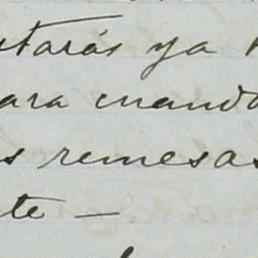 starás ya
para cuando
s remesas
te —